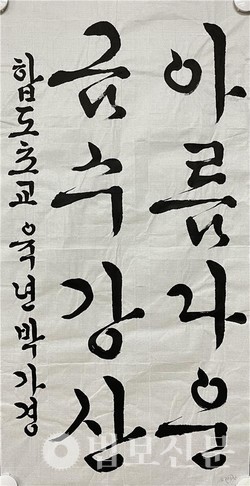 아름다움
금수강산
합도초교 육년 박가경
법보신문